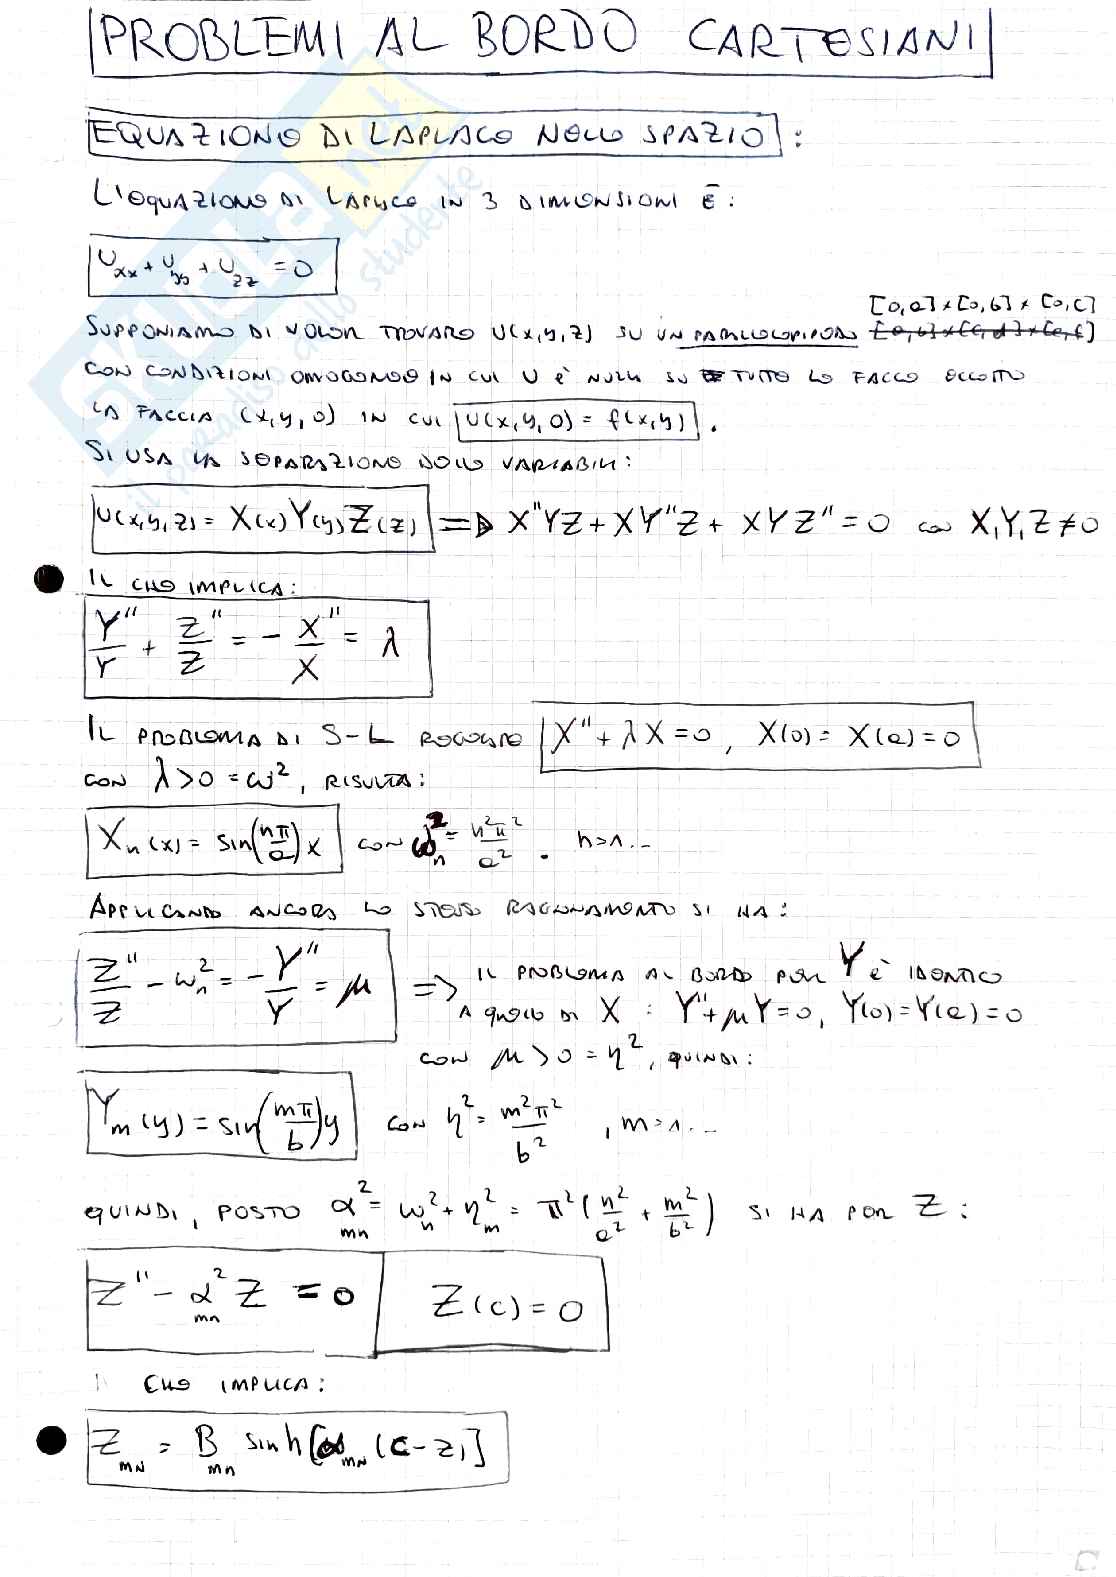 PROBLEMI AL BORDO CARTESIANI
EQUAZIONE DI LAPLACE NELLO SPAZIO :
L'EQUAZIONE DI LAPLACE IN 3 DIMENSIONI È :
U_xx + U_yy + U_zz = 0
[0,a] × [0,b] × [0,c]
SUPPONIAMO DI VOLER TROVARE U(x,y,z) SU UN PARALLELEPIPEDO
CON CONDIZIONI OMOGENEE IN CUI U È NULLA SU TUTTE LE FACCE ECCETTO
LA FACCIA (x,y,0) IN CUI U(x,y,0) = f(x,y) .
SI USA LA SEPARAZIONE DELLE VARIABILI :
U(x,y,z) = X(x)Y(y)Z(z) => X''YZ + XY''Z + XYZ'' = 0 con X,Y,Z ≠ 0
IL CHE IMPLICA :
Y''/Y + Z''/Z = - X''/X = λ
IL PROBLEMA DI S-L REGOLARE X'' + λX = 0 , X(0) = X(a) = 0
CON λ > 0 = ω² , RISULTA :
X_n(x) = sin(nπ/a)x CON ω_n² = n²π²/a² . n=1...
APPLICANDO ANCORA LO STESSO RAGIONAMENTO SI HA :
Z''/Z - ω_n² = - Y''/Y = μ => IL PROBLEMA AL BORDO PER Y È IDENTICO
A QUELLO DI X : Y'' + μY = 0 , Y(0) = Y(a) = 0
CON μ > 0 = η² , QUINDI :
Y_m(y) = sin(mπ/b)y CON η² = m²π²/b² , m=1...
QUINDI , POSTO α²_mn = ω_n² + η_m² = π²(n²/a² + m²/b²) SI HA PER Z :
Z'' - α²_mn Z = 0 Z(c) = 0
CHE IMPLICA :
Z_mn = B_mn sinh[α_mn (c-z)]
SKUOLA.net
il paradiso dello studente